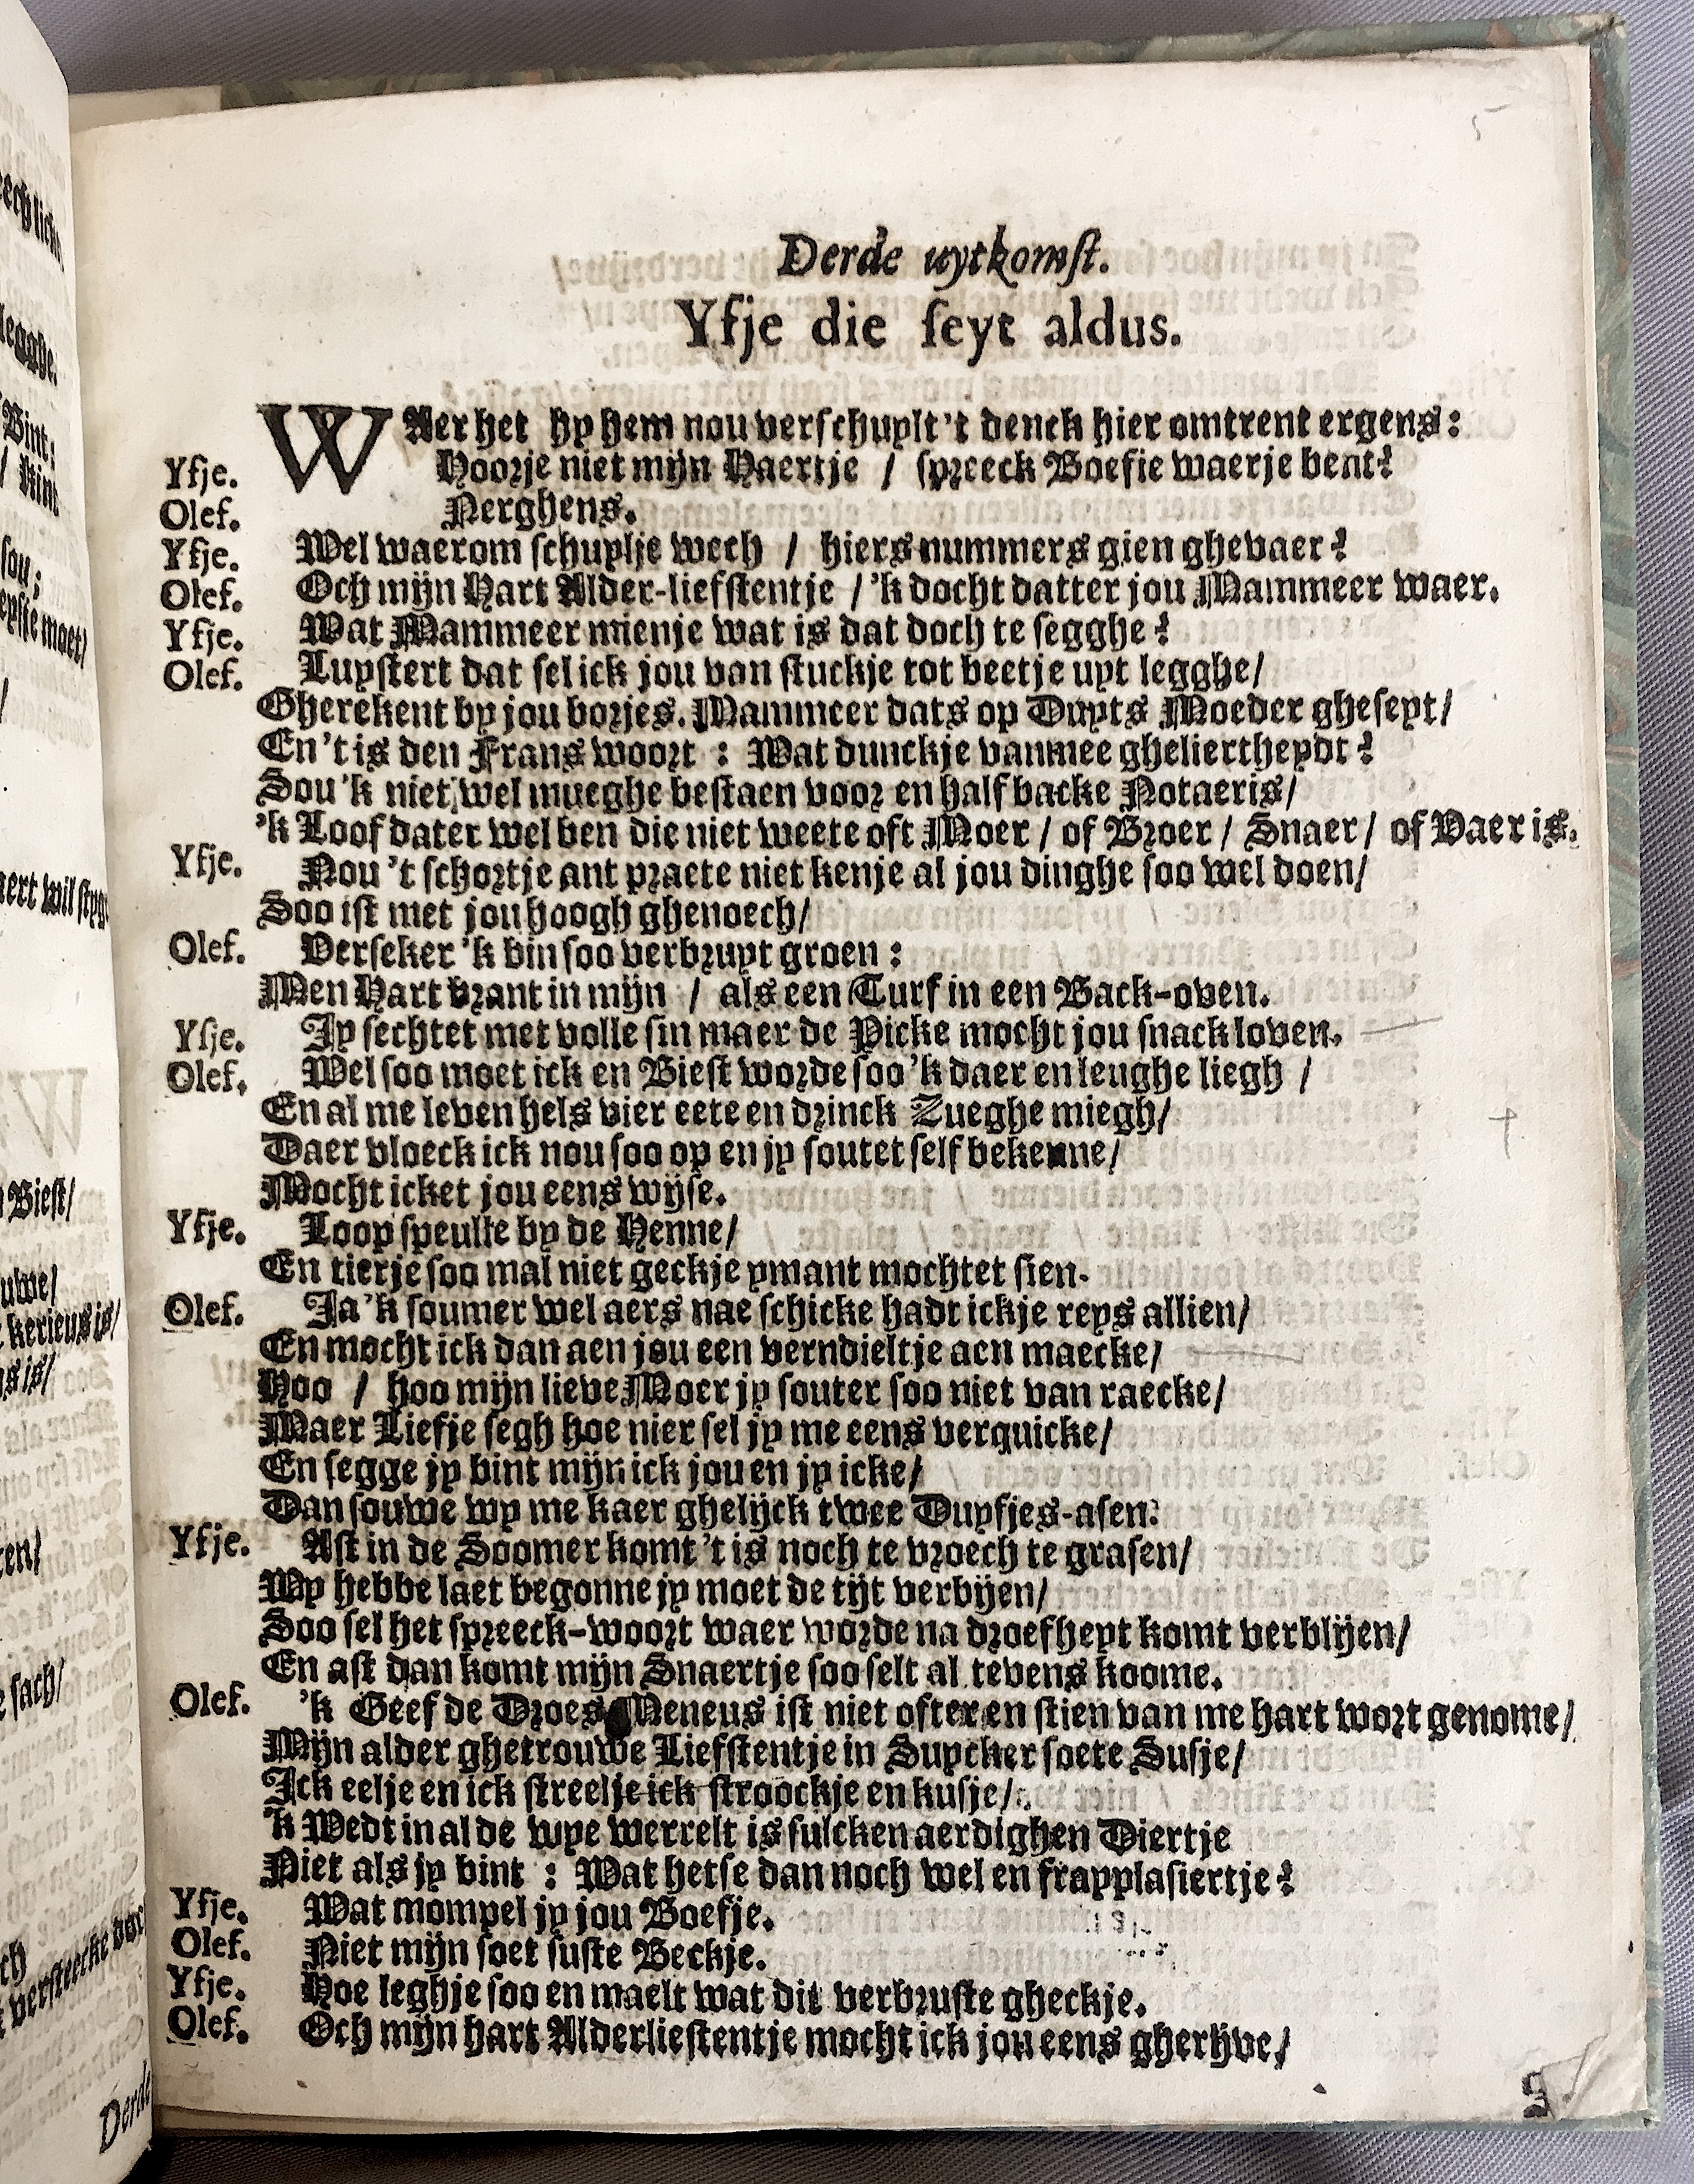 5
Derde uytkomst.
Yfje die seyt aldus.
WAer het hy hem nou verschuylt 't denck hier omtrent ergens:
Yfje. Hoorje niet mijn Haertje / spreeck Boefie waerje bent?
Olef. Nerghens.
Yfje. Wel waerom schuylje wech / hiers nummers gien ghevaer?
Olef. Och mijn Hart Alder-liefstentje / 'k docht datter jou Mammeer waer.
Yfje. Wat Mammeer mienje wat is dat doch te segghe?
Olef. Luystert dat sel ick jou van stuckje tot beetje uyt legghe/
Gherekent by jou borjes. Mammeer dats op Duyts Moeder gheseyt/
En 't is den Frans woort : Wat dunckje vanmee gheliertheydt?
Sou 'k niet wel mueghe bestaen voor en half backe Notaeris/
'k Loof dater wel ben die niet weete oft Moer / of Broer / Snaer / of Vaer is.
Yfje. Nou 't schortje ant praete niet kenje al jou dinghe soo wel doen/
Soo ist met jou hoogh ghenoech/
Olef. Verseker 'k bin soo verbruyt groen :
Men Hart brant in mijn / als een Turf in een Back-oven.
Yfje. Jy sechtet met volle sin maer de Picke mocht jou snack loven.
Olef. Wel soo moet ick en Biest worde soo 'k daer en leughe liegh /
En al me leven hels vier eete en drinck Zueghe miegh/
Daer vloeck ick nou soo op en jy soutet self bekenne/
Mocht icket jou eens wijse.
Yfje. Loop speulle by de Henne/
En tierje soo mal niet geckje ymant mochtet sien.
Olef. Ja 'k soumer wel aers nae schicke hadt ickje reys allien/
En mocht ick dan aen jou een verndieltje aen maecke/
Hoo / hoo mijn lieve Moer jy souter soo niet van raecke/
Maer Liefje segh hoe nier sel jy me eens verquicke/
En segge jy bint mijn ick jou en jy icke/
Dan souwe wy me kaer ghelijck twee Duyfjes-asen:
Yfje. Ast in de Soomer komt 't is noch te vroech te grasen/
Wy hebbe laet begonne jy moet de tijt verbijen/
Soo sel het spreeck-woort waer worde na droefheyt komt verblijen/
En ast dan komt mijn Snaertje soo selt al tevens koome.
Olef. 'k Geef de Droes Meneus ist niet ofter en stien van me hart wort genome/
Mijn alder ghetrouwe Liefstentje in Suycker soete Susje/
Ick eelje en ick streelje ick stroockje en kusje/
'k Wedt in al de wye werrelt is sulcken aerdighen Diertje
Niet als jy bint : Wat hetse dan noch wel en frapplasiertje?
Yfje. Wat mompel jy jou Boefje.
Olef. Niet mijn soet suste Beckje.
Yfje. Hoe leghje soo en maelt wat dit verbruste gheckje.
Olef. Och mijn hart Alderliestentje mocht ick jou eens gherijve/